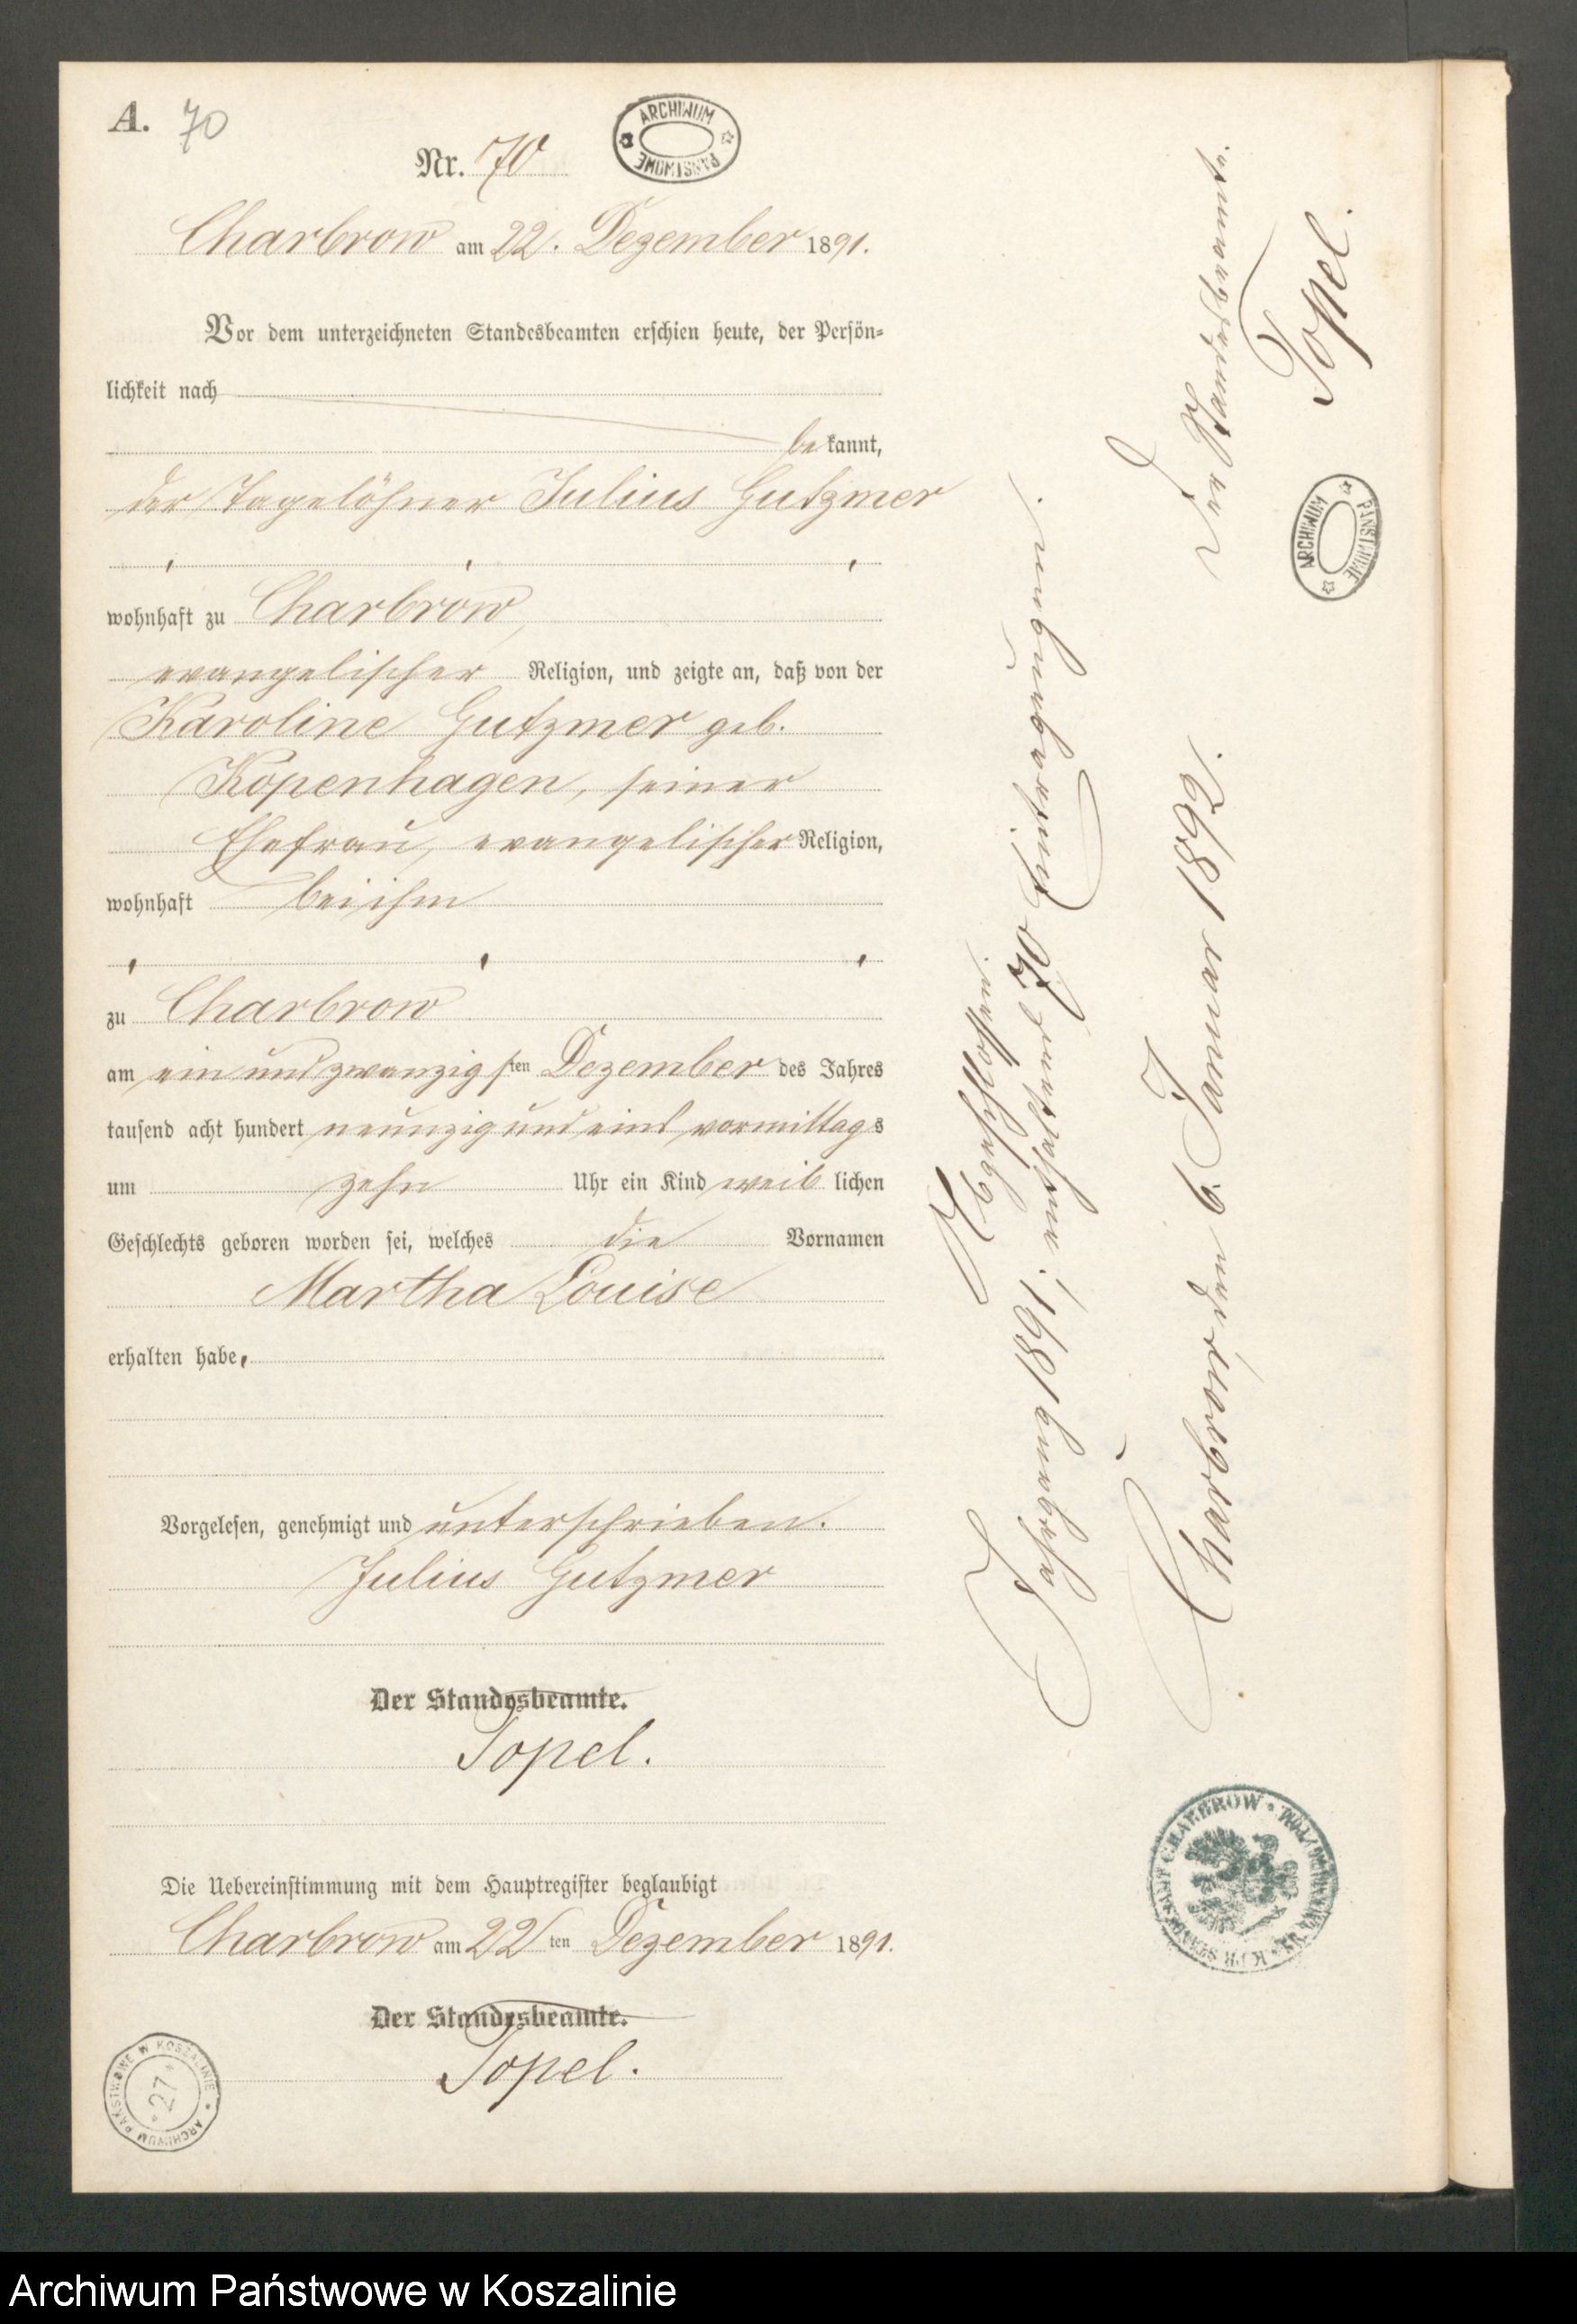 A. 70
Nr. 70
ARCHIWUM PAŃSTWOWE
Charbrow am 22. Dezember 1891.
Vor dem unterzeichneten Standesbeamten erschien heute, der Persön=
lichkeit nach
be kannt,
der Tagelöhner Julius Gutzmer
wohnhaft zu Charbrow,
evangelischer Religion, und zeigte an, daß von der
Karoline Gutzmer geb.
Kopenhagen, seiner
Ehefrau, evangelischer Religion,
wohnhaft bei ihm
zu Charbrow
am ein und zwanzigsten Dezember des Jahres
tausend acht hundert neunzig und eins vormittags
um zehn Uhr ein Kind weib lichen
Geschlechts geboren worden sei, welches die Vornamen
Martha Louise
erhalten habe.
Vorgelesen, genehmigt und unterschrieben.
Julius Gutzmer
Der Standesbeamte.
Topel.
Die Uebereinstimmung mit dem Hauptregister beglaubigt
Charbrow am 22ten Dezember 1891.
Der Standesbeamte.
Topel.
ARCHIWUM PAŃSTWOWE W KOSZALINIE
*27*
Abgeschlossen
Jahrgang 1891, enthaltend 70 Eintragungen.
Charbrow, den 6. Januar 1892.
Der Standesbeamte.
Topel.
ARCHIWUM PAŃSTWOWE
K. PR. STANDESAMT CHARBROW
Archiwum Państwowe w Koszalinie